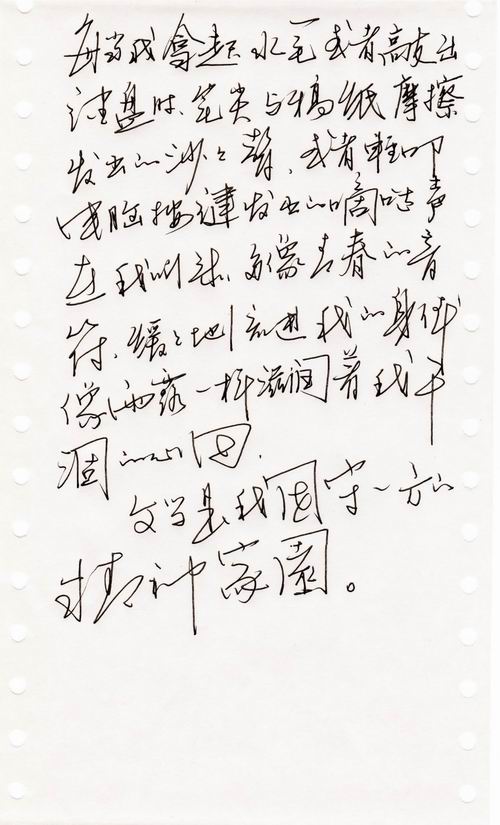 每当我拿起水笔或者敲出
键盘时、笔尖与稿纸摩擦
发出的沙沙声、或者轻叩
电脑按键发出的嘀哒声
在我听来、好像青春的音
符、缓缓地引流进我的身体
像雨露一样滋润着我干
涸的心田.
文学是我固守一方的
精神家园。